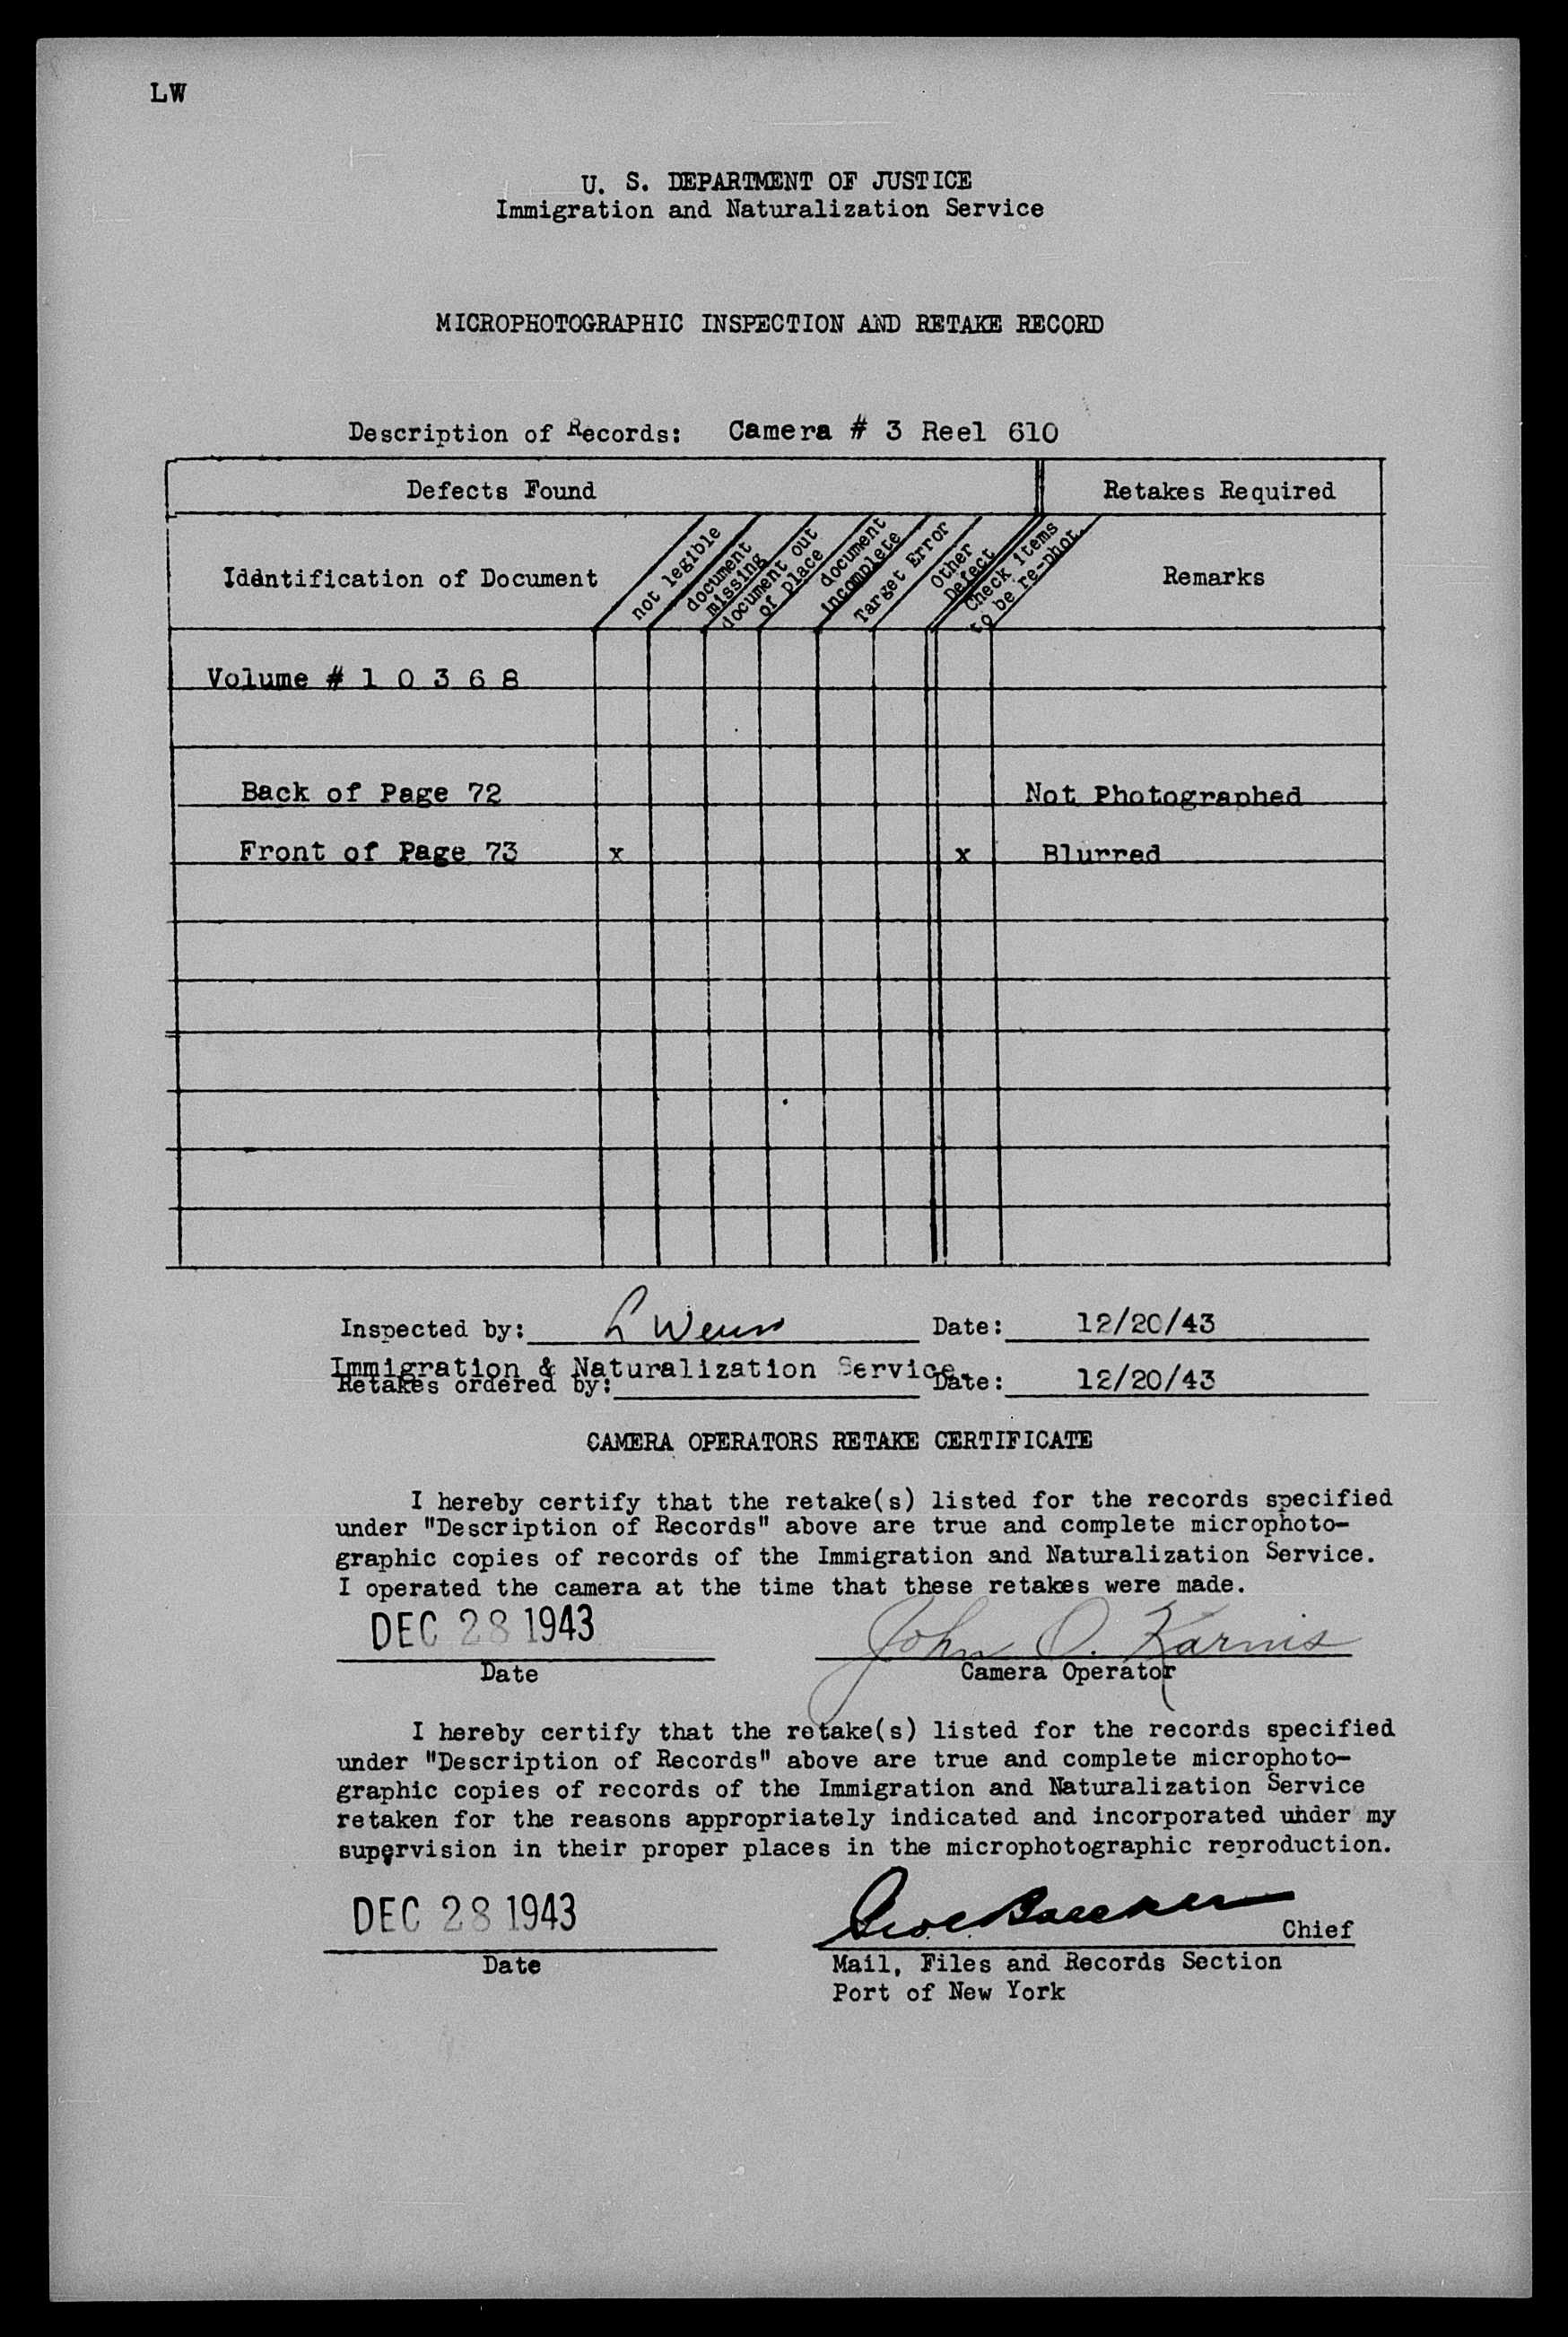 LW
U. S. DEPARTMENT OF JUSTICE
Immigration and Naturalization Service
MICROPHOTOGRAPHIC INSPECTION AND RETAKE RECORD
Description of Records: Camera # 3 Reel 610
Defects Found
Retakes Required
Identification of Document
not legible
document
missing
document out
of place
document
incomplete
Target Error
Other
Defect
Check items
to be re-phot.
Remarks
Volume # 1 0 3 6 8
Back of Page 72 Not Photographed
Front of Page 73 x x Blurred
Inspected by: L Date: 12/20/43
Immigration & Naturalization Service.
Retakes ordered by: Date: 12/20/43
CAMERA OPERATORS RETAKE CERTIFICATE
I hereby certify that the retake(s) listed for the records specified
under "Description of Records" above are true and complete microphoto-
graphic copies of records of the Immigration and Naturalization Service.
I operated the camera at the time that these retakes were made.
DEC 28 1943 John O. Karnis
Date Camera Operator
I hereby certify that the retake(s) listed for the records specified
under "Description of Records" above are true and complete microphoto-
graphic copies of records of the Immigration and Naturalization Service
retaken for the reasons appropriately indicated and incorporated under my
supervision in their proper places in the microphotographic reproduction.
DEC 28 1943 Chief
Date Mail, Files and Records Section
Port of New York